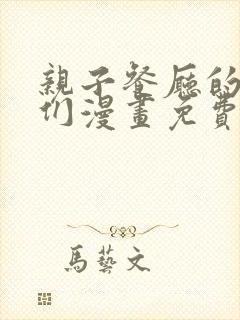 親子餐廳的
们漫畫免費
馬藝文